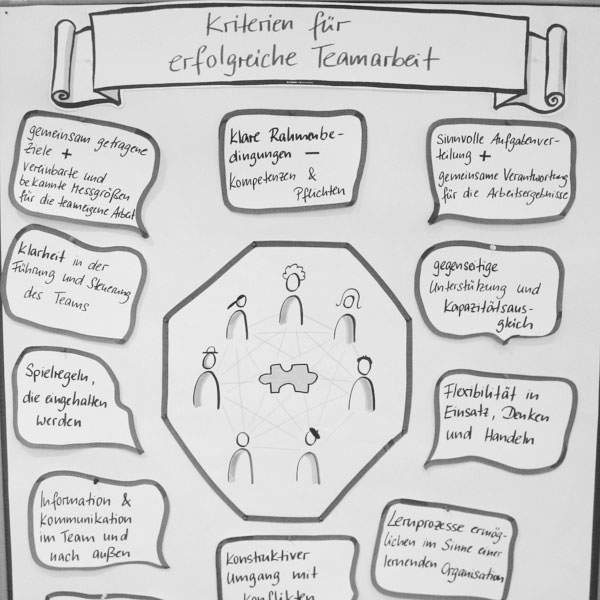 Kriterien für
erfolgreiche Teamarbeit
gemeinsam getragene
Ziele +
vereinbarte und
bekannte Messgrößen
für die teameigene Arbeit
Klare Rahmenbe-
dingungen –
Kompetenzen &
Pflichten
Sinnvolle Aufgabenver-
teilung +
gemeinsame Verantwortung
für die Arbeitsergebnisse
Klarheit in der
Führung und Steuerung
des Teams
gegenseitige
Unterstützung und
Kapazitätsaus-
gleich
Spielregeln,
die eingehalten
werden
Flexibilität in
Einsatz, Denken
und Handeln
Information &
Kommunikation
im Team und
nach außen
Konstruktiver
Umgang mit
Konflikten
Lernprozesse ermög-
lichen im Sinne einer
lernenden Organisation